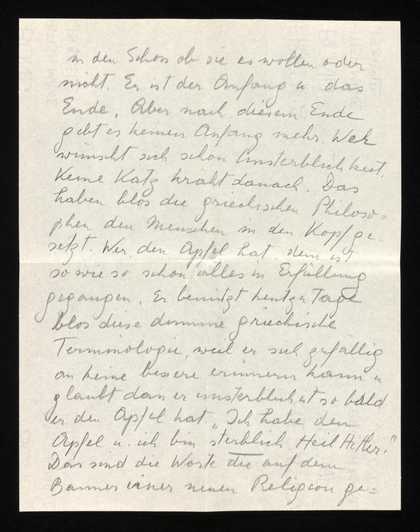 in den Schoss ob sie es wollen oder
nicht. Er ist der Anfang u das
Ende. Aber nach diesem Ende
gibt es keinen Anfang mehr. Wer
wünscht sich schon Unsterblichkeit.
Keine Katz kräht danach. Das
haben blos die griechischen Philoso-
phen den Menschen in den Kopf ge-
setzt. Wer den Apfel hat, dem ist
so wie so schon alles in Erfüllung
gegangen. Er benützt heutzu Tage
blos diese dumme griechische
Terminologie, weil er sich zufällig
an keine bessere erinnern kann u
glaubt dan er unsterblich ist so bald
er den Apfel hat. "Ich habe den
Apfel u. ich bin sterblich Heil Hitler!"
Das sind die Worte die auf dem
Banner einer neuen Religion ge=